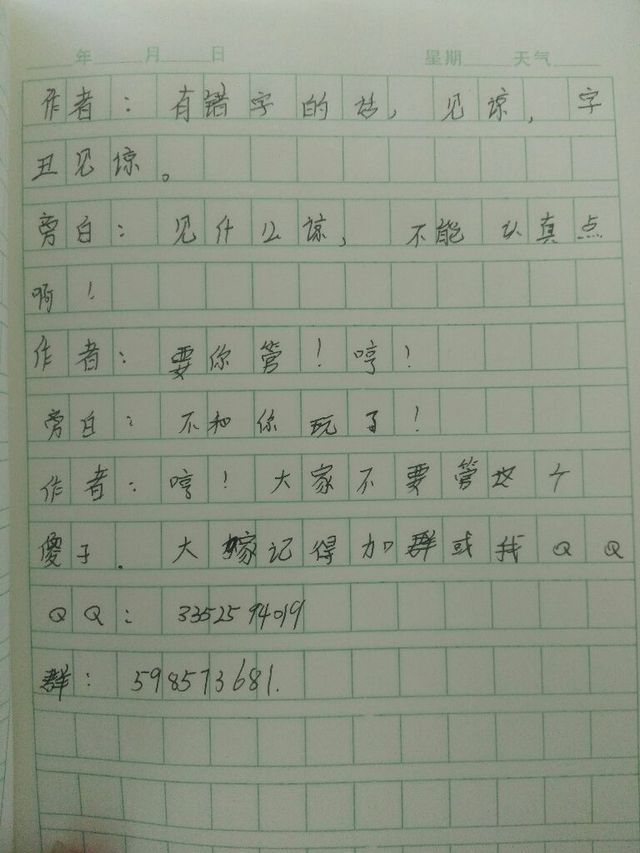 年 月 日 星期 天气
作者：有错字的话，见谅，字
丑见谅。
旁白：见什么谅，不能认真点
啊！
作者：要你管！哼！
旁白：不和你玩了！
作者：哼！大家不要管这个
傻子．大嫁记得加群或我QQ
QQ：3352594019
群：598573681.